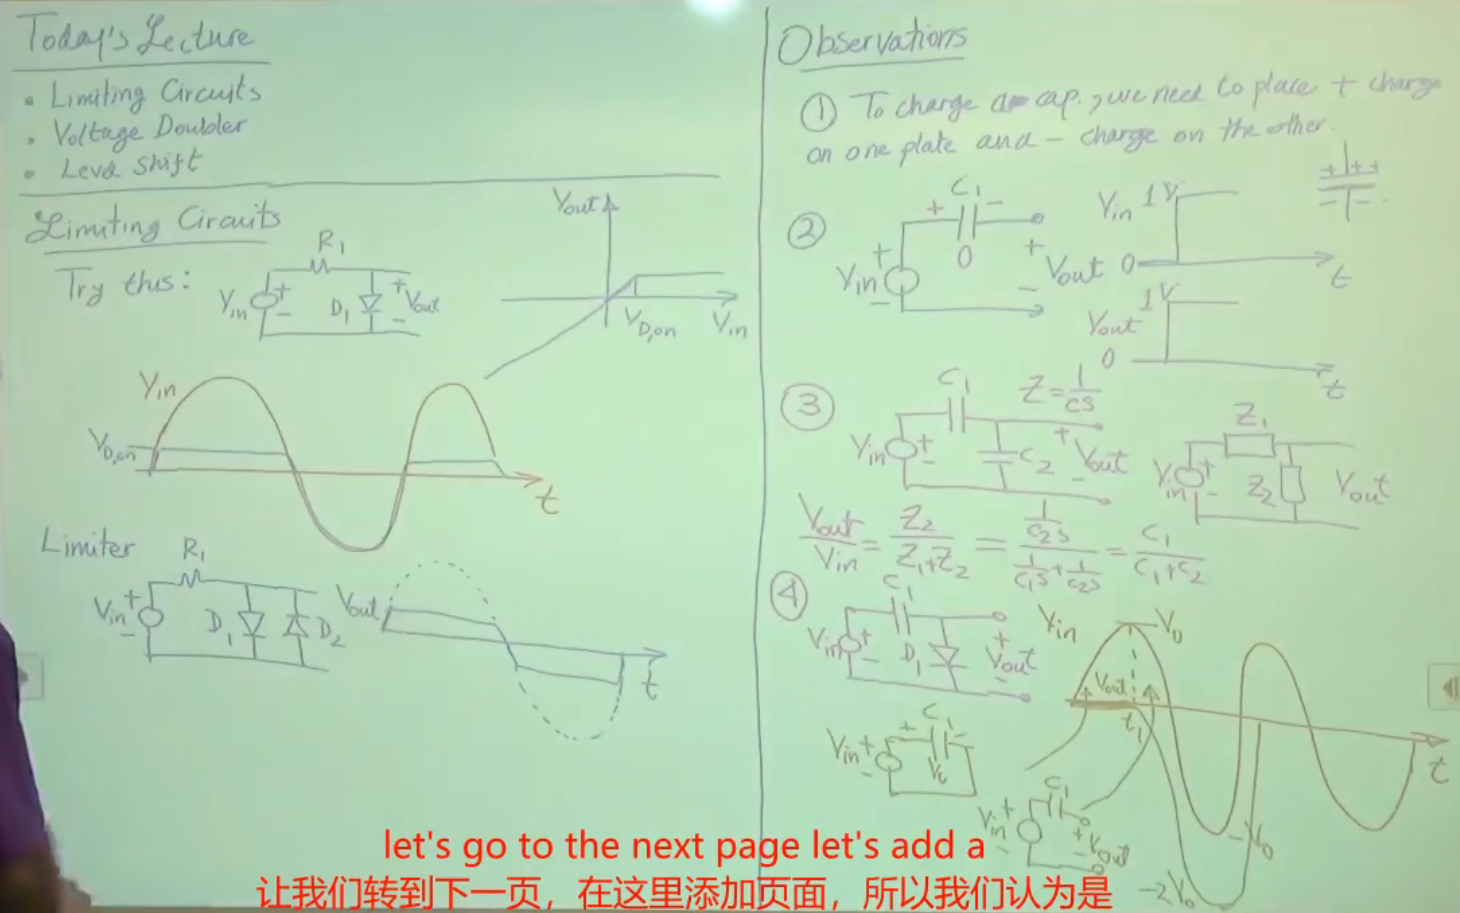 Today's Lecture
• Limiting Circuits
• Voltage Doubler
• Level Shift
Limiting Circuits
Try this:
R1
Vin
+
-
D1
+
Vout
-
Vout
VD,on
Vin
Vin
VD,on
t
Limiter
R1
Vin
+
-
D1
D2
Vout
t
Observations
① To charge a cap., we need to place + charge
on one plate and - charge on the other.
②
C1
+ -
0
Vin
+
-
+
Vout
-
Vin 1V
0
t
Vout 1V
0
t
③
C1
Z = 1/CS
Vin
+
-
C2
+
Vout
-
Z1
Vin
+
-
Z2
Vout
Vout/Vin = Z2/(Z1+Z2) = (1/C2S)/(1/C1S + 1/C2S) = C1/(C1+C2)
④
C1
Vin
+
-
D1
+
Vout
-
Vin
V0
Vout
t1
t
-V0
-2V0
C1
+ -
Vin
+
-
C1
Vin
+
-
+
Vout
-
let's go to the next page let's add a
让我们转到下一页，在这里添加页面，所以我们认为是